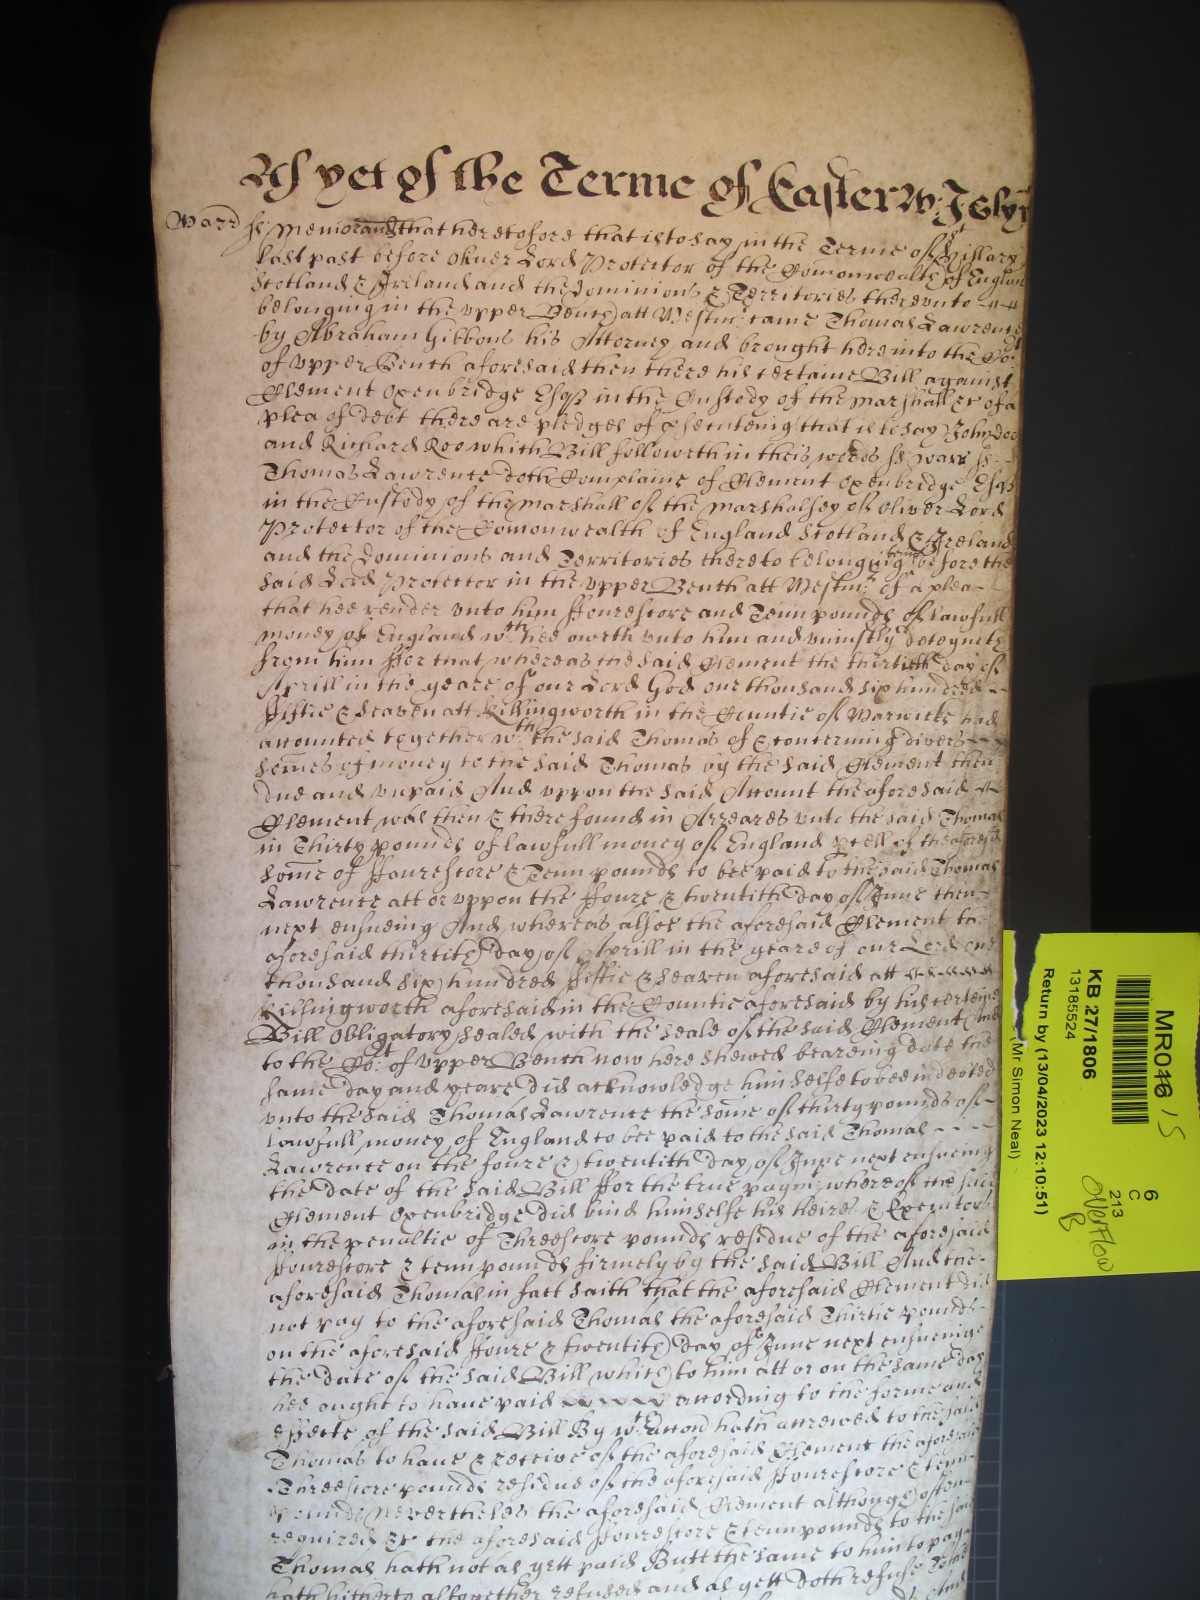 As yet of the Terme of Easter W: Jslyn
Warr ss Memorand that heretofore that is to say in the Terme of St Hillary
last past before Oliver Lord Protector of the Comonwealth of England
Scotland & Ireland and the Dominions & Territories thereunto
belonging in the upper Bench att Westmr: came Thomas Lawrence
by Abraham Gibbons his Attorney and brought here into the Cot
of upper Bench aforesaid then there his certaine Bill against
Clement Oxenbridge Esqr in the Custody of the Marshall &c of a
plea of debt there are pledges of prosecuteing that is to say John Doe
and Richard Roe which Bill followeth in theis words ss Warr ss
Thomas Lawrence doth Complaine of Clement Oxenbridge Esqr
in the Custody of the Marshall of the Marshalsey of Oliver Lord
Protector of the Comonwealth of England Scotland & Ireland
and the Dominions and Territories thereto belonging being before the
said Lord Protector in the upper Bench att Westmr: of a plea
that hee render unto him ffourescore and Tenn pounds of lawfull
money of England wch hee oweth unto him and uniustly deteyneth
from him ffor that whereas the said Clement the thirtieth day of
Aprill in the yeare of our Lord God one thousand six hundred
ffiftie & seaven att Killingworth in the Countie of Warwicke had
accounted together wth the said Thomas of & concerning divers
somes of money to the said Thomas by the said Clement then
due and unpaid And uppon the said Account the aforesaid
Clement was then & there found in Arreares unto the said Thomas
in Thirty pounds of lawfull money of England pcell of the aforesd
some of ffourescore & Tenn pounds to bee paid to the said Thomas
Lawrence att or uppon the ffoure & twentith day of June then
next ensueing And whereas alsoe the aforesaid Clement the
aforesaid thirtith day of Aprill in the yeare of our Lord one
thousand six hundred ffiftie & seaven aforesaid att
Killingworth aforesaid in the Countie aforesaid by his certeine
Bill Obligatory sealed with the seale of the said Clement And
to the Cot: of upper Bench now here shewed beareing date the
same day and yeare did acknowledge himselfe to bee indebted
unto the said Thomas Lawrence the some of thirty pounds of
lawfull money of England to bee paid to the said Thomas
Lawrence on the foure & twentith day of June next ensueing
the date of the said Bill ffor the true paymt: whereof the said
Clement Oxenbridge did bind himselfe his heires & Executors
in the penaltie of Threescore pounds residue of the aforesaid
ffourescore & tenn pounds firmely by the said Bill And the
aforesaid Thomas in fact saith that the aforesaid Clement did
not pay to the aforesaid Thomas the aforesaid Thirtie pounds
on the aforesaid ffoure & twentith day of June next ensueinge
the date of the said Bill which to him att or on the same day
hee ought to have paid according to the forme and
effecte of the said Bill By wch accon hath accrewed to the said
Thomas to have & receive of the aforesaid Clement the aforesaid
Threescore pounds residue of the aforesaid ffourescore & tenn
pounds Nevertheles the aforesaid Clement although often
required &c the aforesaid ffourescore & tenn pounds to the said
Thomas hath not as yett paid Butt the same to him to pay
hath hitherto altogether refused and as yett doth refuse
MR016 / 15
KB 27/1806
13185524
Return by (13/04/2023 12:10:51)
Mr Simon Neal)
6
C
213
Overflow
B